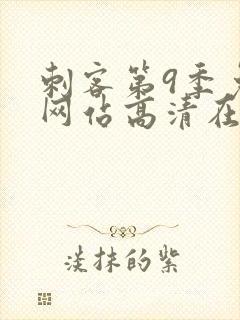 刺客第9季
网佔高清在
淡抹的紫